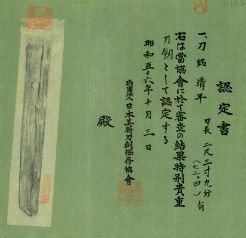 認定書
一、刀 銘 清平
刀長 二尺三寸九分 有
(七二・四)
右は當協會に於て審査の結果特別貴重
刀劍として認定する
昭和五十六年十月三日
財團法人日本美術刀劍保存協會
殿